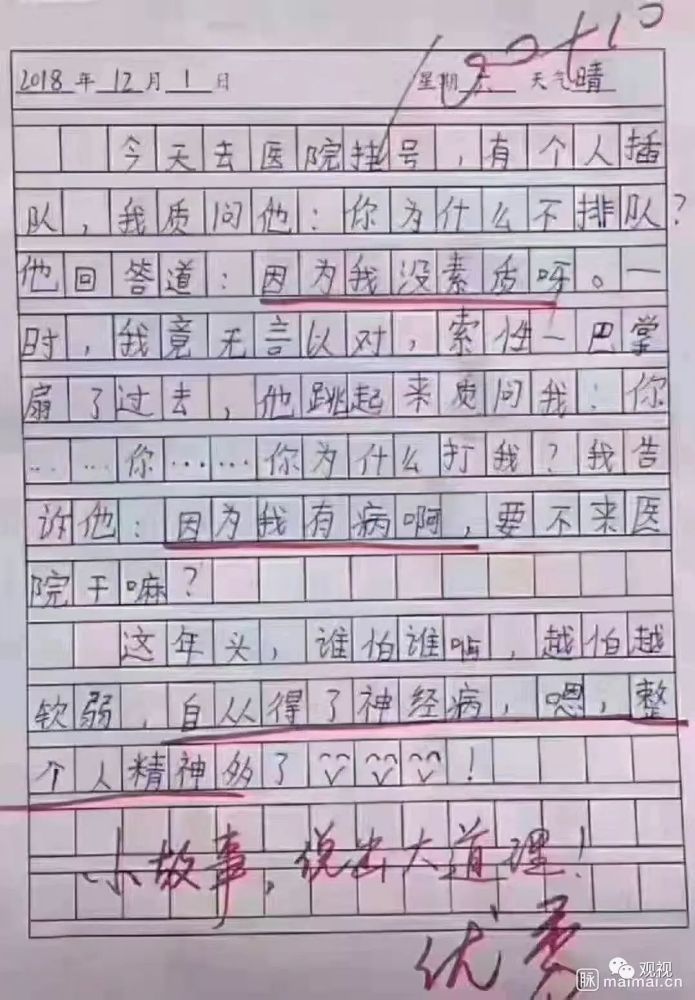 100+10
2018年12月1日 星期六 天气晴
今天去医院挂号，有个人插
队，我质问他：你为什么不排队？
他回答道：因为我没素质呀。一
时，我竟无言以对，索性一巴掌
扇了过去，他跳起来质问我：你
……你……你为什么打我？我告
诉他：因为我有病啊，要不来医
院干嘛？
这年头，谁怕谁啊，越怕越
软弱，自从得了神经病，嗯，整
个人精神多了！
小故事，说出大道理！
优秀
观视
脉 maimai.cn